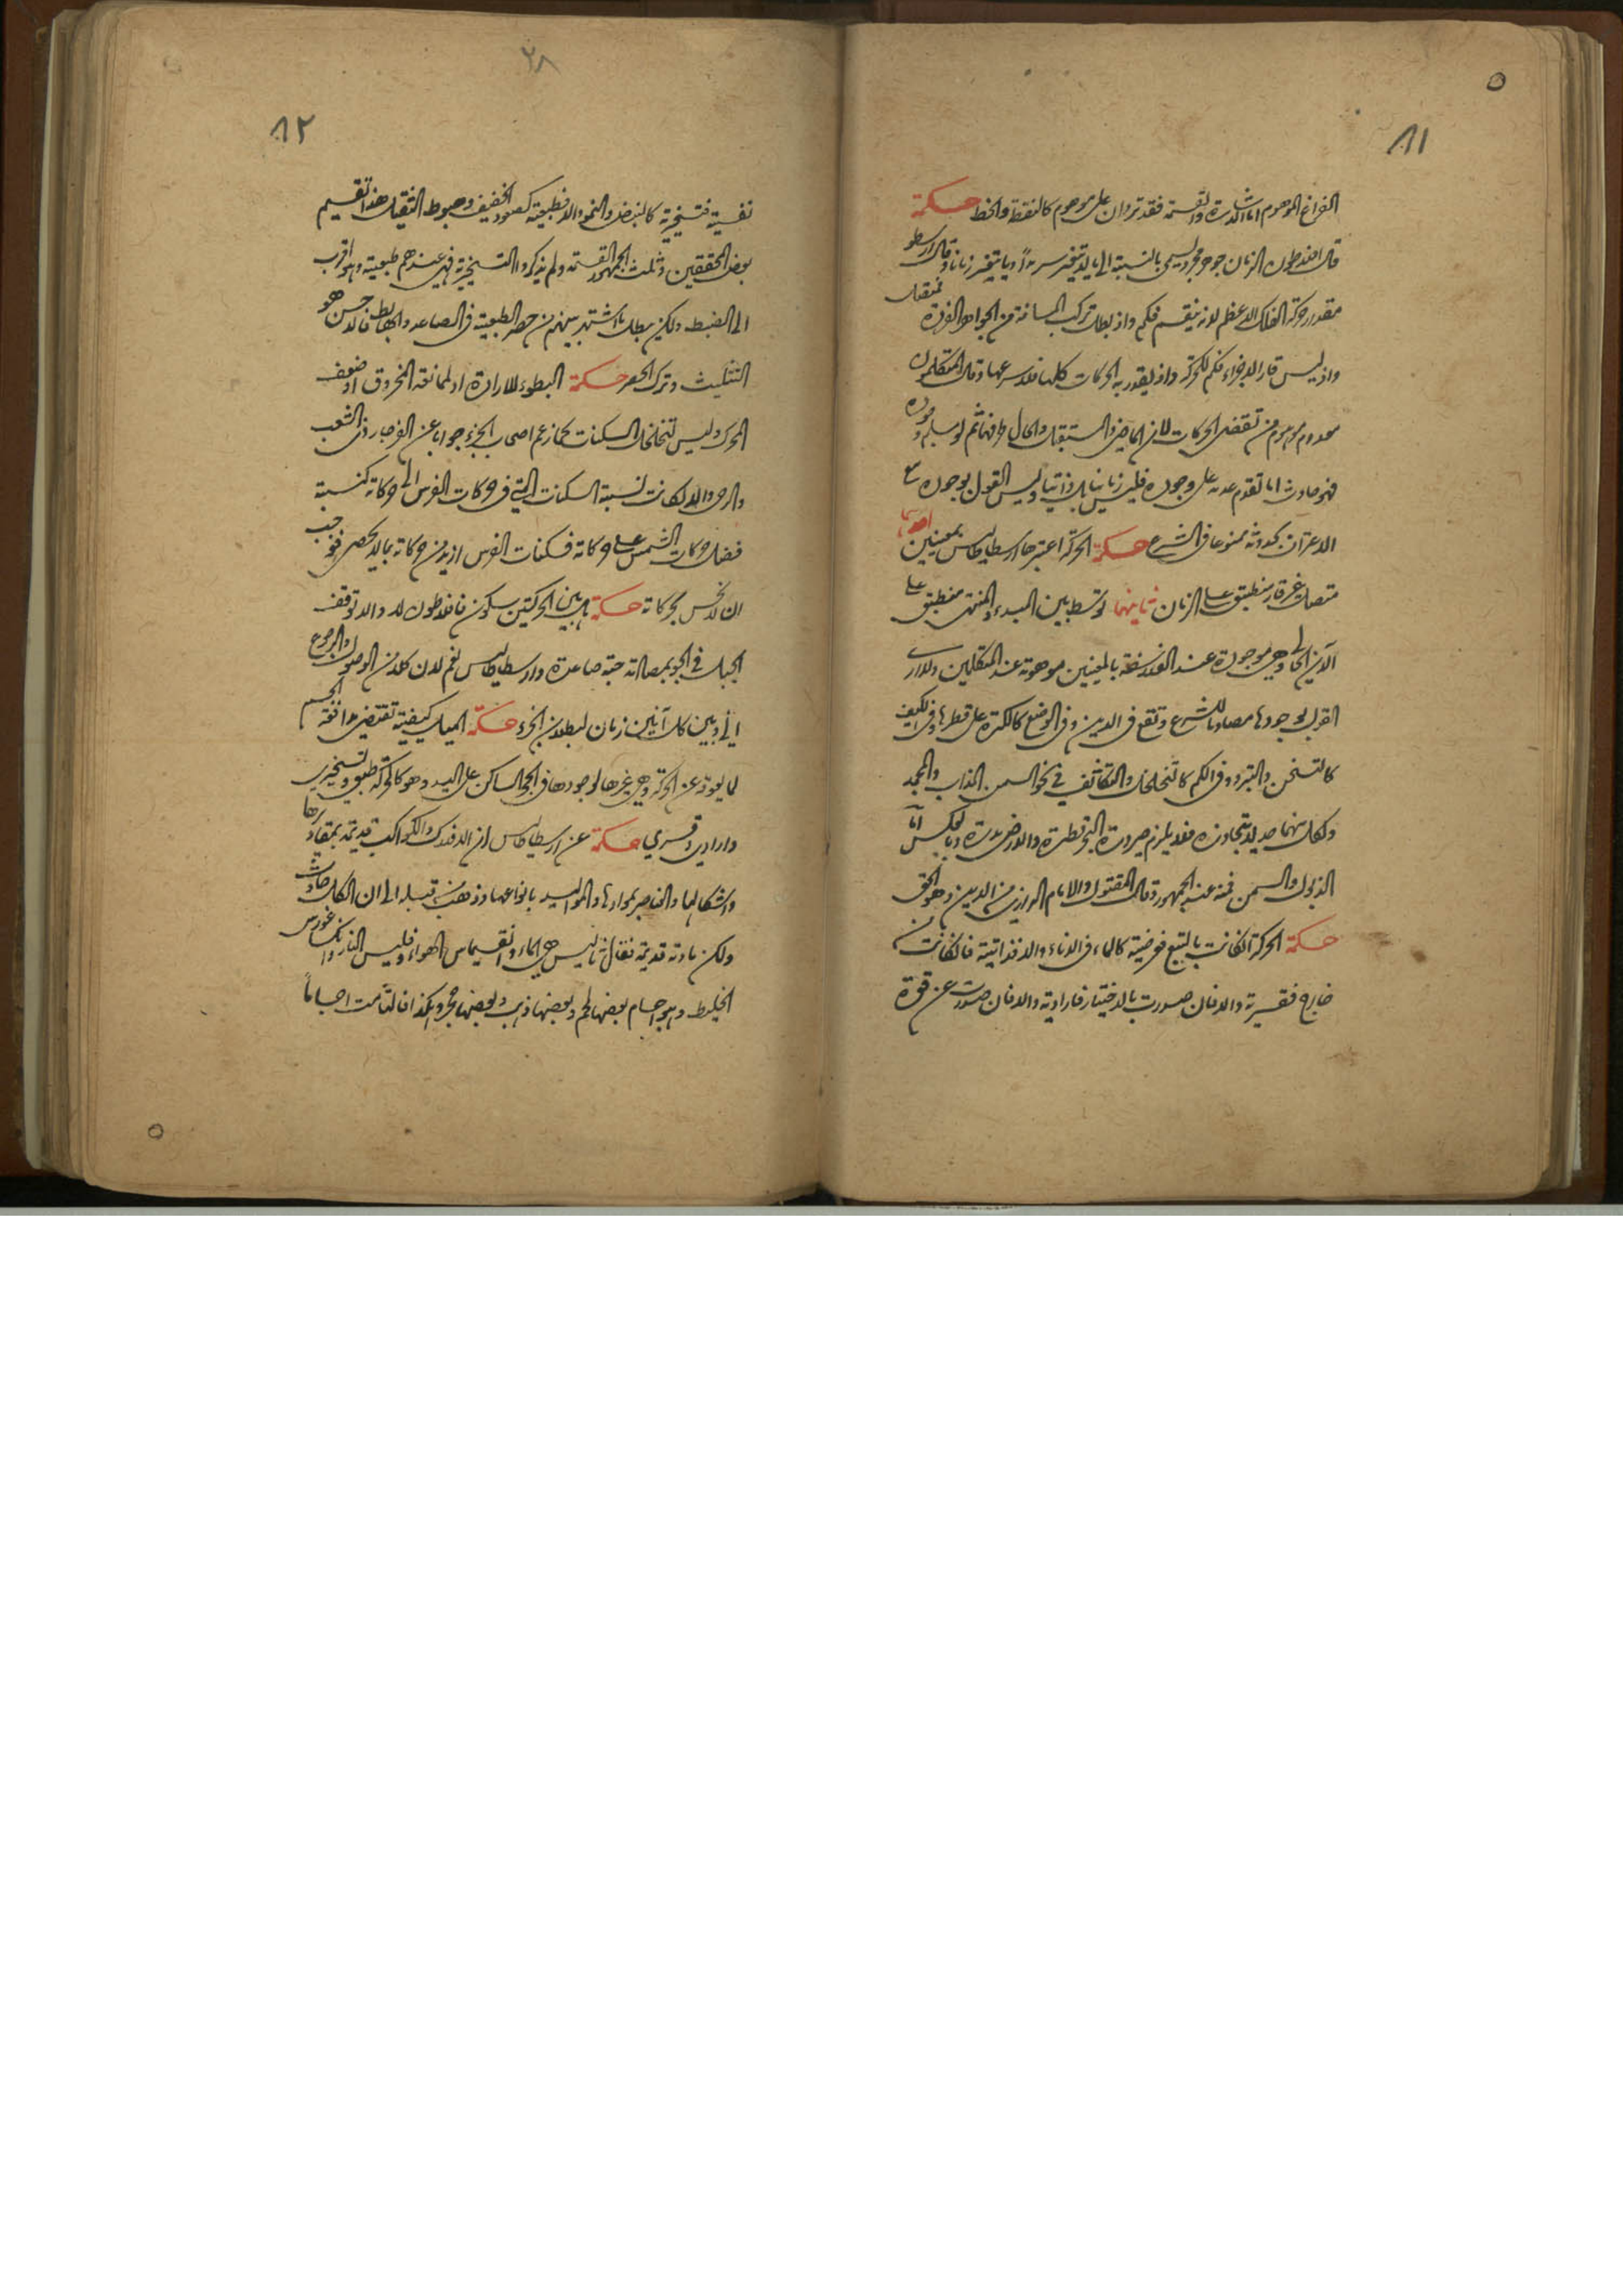 ٨١
الفراغ الموهوم اما الاشارة والقسمة فقد تردان على موهوم كالنقطة والخط حكمة
قال افلاطون الزمان جوهر مجرد يسمى بالنسبة الى ما لا يتغير سرمدا وما يتغير زمانا وقال ارسطو
مقدار حركة الفلك الاعظم لانه ينقسم فكم واذ بطل تركب المسافة من الجواهر الفردة فمتصل
واذ ليس قار الاجزاء فكم للحركة واذ يقدر به الحركات كلها فلاسرعها وقال المتكلمون
معدوم موهوم من تقضي الحركات لان الماضي والمستقبل والحال طرفهما ثم لو سلم وجوده
فهو حادث اما تقدم عدمه على وجوده فليس زمانيا بل ذاتيا وليس القول بوجوده مع
الاعتراف بحدوثه ممنوعا في الشرع حكمة الحركة اعتبرها ارسطاطاليس بمعنيين احدهما
متصل غير قار منطبق على الزمان ثانيهما توسط بين المبدء والمنتهى منطبق على
الآن الحالي وهي موجودة عند الفلاسفة بالمعنيين موهومة عند المتكلمين ولا ارى
القول بوجودها مصادما للشرع وتقع في الاين وفي الوضع كالكرة على قطرها وفي الكيف
كالتسخن والتبرد وفي الكم كالتخلخل والتكاثف في نحو السمن الذائب والمجمد
ولكل منهما حد لا يتجاوزه فلا يلزم صيرورة البحر قطرة والارض بدرة وبالعكس اما
الذبول والسمن فمنه عند الجمهور وقال المقتول والامام الرازي من الاين وهو الحق
حكمة الحركة ان كانت بالتبع فعرضية كالماء في الاناء والا فذاتية فان كانت من
خارج فقسرية والا فان صدرت بالاختيار فارادية والا فان صدرت عن قوة
٨٢
نفسية فتسخيرية كالنبض والنمو والا فطبعية كصعود الخفيف وهبوط الثقيل هذا تقسيم
بعض المحققين وثلث الجمهور القسمة ولم يذكروا التسخيرية فهي عندهم طبعية وهو اقرب
الى الضبط ولكن يبطل ما اشتهر بينهم من حصر الطبعية في الصاعد والهابط فالاحسن هو
التثليث وترك الحصر حكمة البطوء للارادة او لممانعة المخروق او ضعف
المحرك وليس لتخلخل السكنات كما زعم اصحاب الجزء جوابا عن الفرجار ذي الشعب
والرحى والا لكانت نسبة السكنات التي في حركات الفرس الى حركاته كنسبة
فضل حركات الشمس على حركاته فسكنات الفرس ازيد من حركاته بما لا يحصر فوجب
ان لا نحس بحركاته حكمة هل بين الحركتين سكون فافلاطون لا والا لتوقف
الجبل في الجو بمصاكة حبة صاعدة وارسطاطاليس نعم لان كلا من الوصول والرجوع
آني وبين كل آنين زمان لبطلان الجزء حكمة الميل كيفية تقتضي مدافعة الجسم
لما يعوقه عن الحركة وهي غيرها لوجودها في الحجر الساكن على اليد وهو كالحركة طبعي وتسخيري
وارادي وقسري حكمة عن ارسطاطاليس ان الافلاك والكواكب قديمة بمقاديرها
واشكالها والعناصر بموادها والمواليد بانواعها وذهب من قبله الى ان الكل حادث
ولكن مادته قديمة فقال ثاليس هي الماء وانقسيماس الهواء وفليس النار وانكساغورس
الخليط وهو اجسام بعضها لحم وبعضها ذهب وبعضها حجر وهكذا فالتأمت اجساما